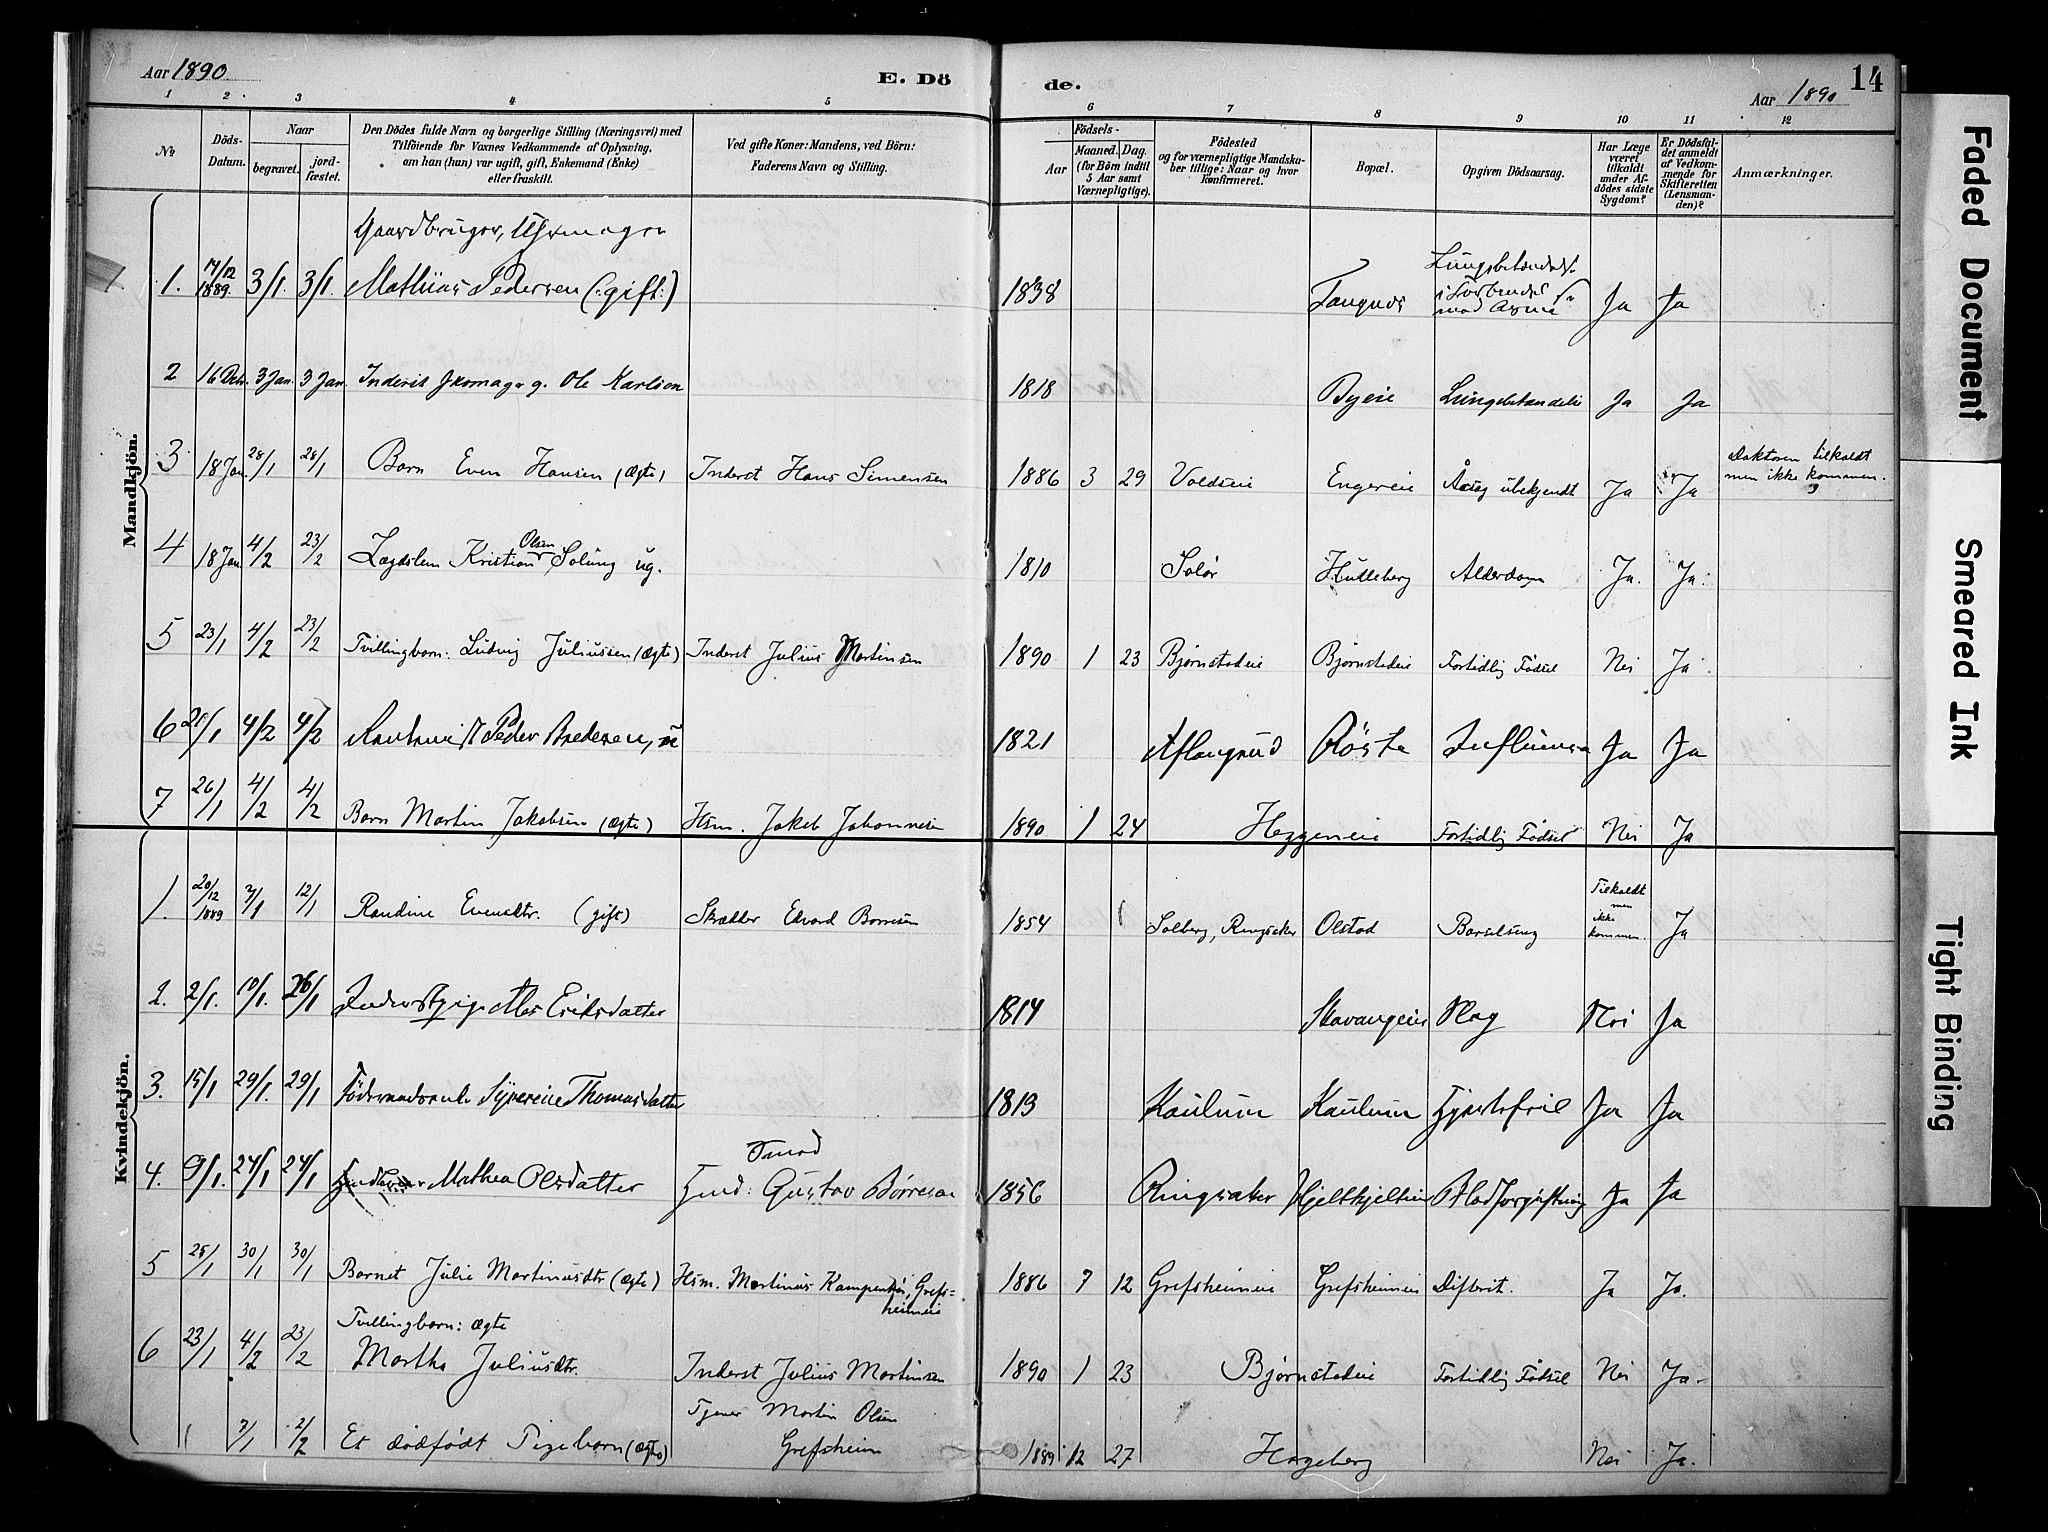 Aar 1890
E. Dö
de.
Aar 1890
14
1 2 3 4 5 6 7 8 9 10 11 12
№
Döds-
Datum.
Naar
begravet.
jord-
fæstet.
Den Dödes fulde Navn og borgerlige Stilling (Næringsvei) med
Tilföiende for Voxnes Vedkommende af Oplysning,
om han (hun) var ugift, gift, Enkemand (Enke)
eller fraskilt.
Ved gifte Koner: Mandens, ved Börn:
Faderens Navn og Stilling.
Födsels-
Aar
Maaned. Dag.
(for Börn indtil
5 Aar samt
Værnepligtige).
Födested
og for værnepligtige Mandska-
ber tillige: Naar og hvor
Konfirmeret.
Bopæl.
Opgiven Dödsaarsag.
Har Læge
været
tilkaldt
under Af-
dödes sidste
Sygdom?
Er Dödsfal-
det anmeldt
af Vedkom-
mende for
Skifteretten
(Lensman-
den)?
Anmærkninger.
Mandkjön.
Gaardbruger,
1. 17/12 1889. 3/1 3/1. Mathias Pedersen (:gift:) 1838 Ja Ja
2 16 Deb. 3 Jan. 3 Jan. Inderst Ole Karlsen 1818 Byeie Lungebetændelse Ja Ja
3 18 Jan. 28/1 28/1 Barn Even Hansen (ægte) Inderst Hans Simensen 1886 3 29 Voldseie Engereie Aarsag ubekjendt Ja Ja Doktoren tilkaldt
men ikke kommen.
4 18 Jan 4/2 23/2 Lægdslem Kristian Olsen Solung ug. 1810 Solør Hulleberg Alderdom Ja. Ja.
5 23/1 4/2 23/2 Tvillingbarn: Ludvig Juliussen (ægte) Inderst Julius Martinsen 1890 1 23 Bjørnstadeie Bjørnstadeie Fortidlig Fødsel Nei Ja
6 4/2 4/2 Peder 1821 Aflangrud Røste Influensa Ja Ja
7 26/1 4/2 4/2 Barn Martin Jakobsen (ægte) Hsm. Jakob Johannesen 1890 1 24 Heggeneie Fortidlig Fødsel Nei Ja
Kvindekjön.
1. 20/12 1889 7/1 12/1 Randine Evensdtr. (gift) Skrædder Edvard Borresen 1854 Solberg, Ringsaker Olstad Barselseng Tilkaldt
men
ikke
kommen. Ja
2. 2/1. 10/1. 26/1 Eriksdatter 1814 Stavangeie Slag Nei Ja
3. 15/1 29/1. 29/1 Føderaadsenke Syverine Thomasdatter 1813 Kaulum Kaulum Hjertefeil Ja Ja
4. 9/1. 24/1 24/1 Mathea Olsdatter Smed
Gmd: Gustav Børresen 1856 Ringsaker Blodforgiftning Ja Ja
5 25/1 30/1 30/1 Barnet Julie Martinusdtr (ægte) Hsm. Martinus Kampenhøi, Grefs=
heimeie 1886 7 12 Grefsheimeie Grefsheimeie Difterit. Ja Ja.
Tvillingbarn: ægte
6 23/1 4/2 23/2 Martha Juliusdtr. Inderst Julius Martinsen 1890 1 23 Bjørnstadeie Fortidlig Fødsel Nei Ja.
7/1 2/2 Et dødfødt Pigebarn (ægte) Tjener Martin Olsen
Grefsheim 1889 12 27 Hageberg Nei Ja.
Faded Document
Smeared Ink
Tight Binding